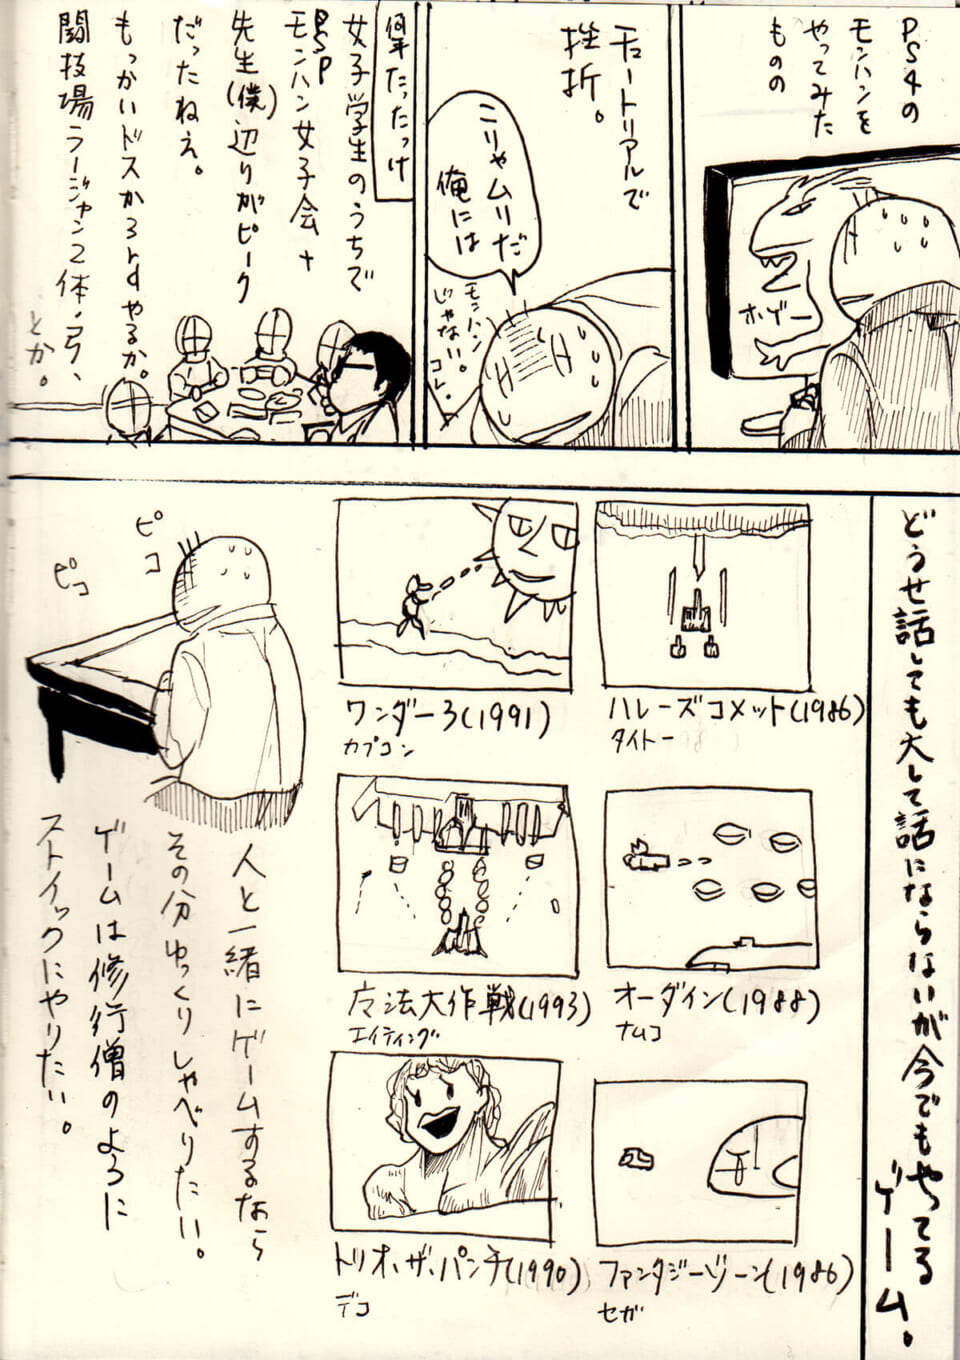 PS4の
モンハンを
やってみた
ものの
ボゲー
チュートリアルで
挫折。
こりゃムリだ
俺には
モンハン
じゃない。
コレ。
何年たったっけ
女子学生のうちで
PSP
モンハン女子会+
先生(僕)辺りがピーク
だったねぇ。
もっかいドスか3rdやるか。
闘技場ラージャン2体、弓、
とか。
どうせ話しても大して話にならないが今でもやってる
ゲーム。
ハレーズコメット(1986)
タイトー
ワンダー3(1991)
カプコン
オーダイン(1988)
ナムコ
魔法大作戦(1993)
エイティング
ファンタジーゾーン(1986)
セガ
トリオ・ザ・パンチ(1990)
デコ
ピコ
ピコ
人と一緒にゲームするなら
その分ゆっくりしゃべりたい。
ゲームは修行僧のように
ストイックにやりたい。